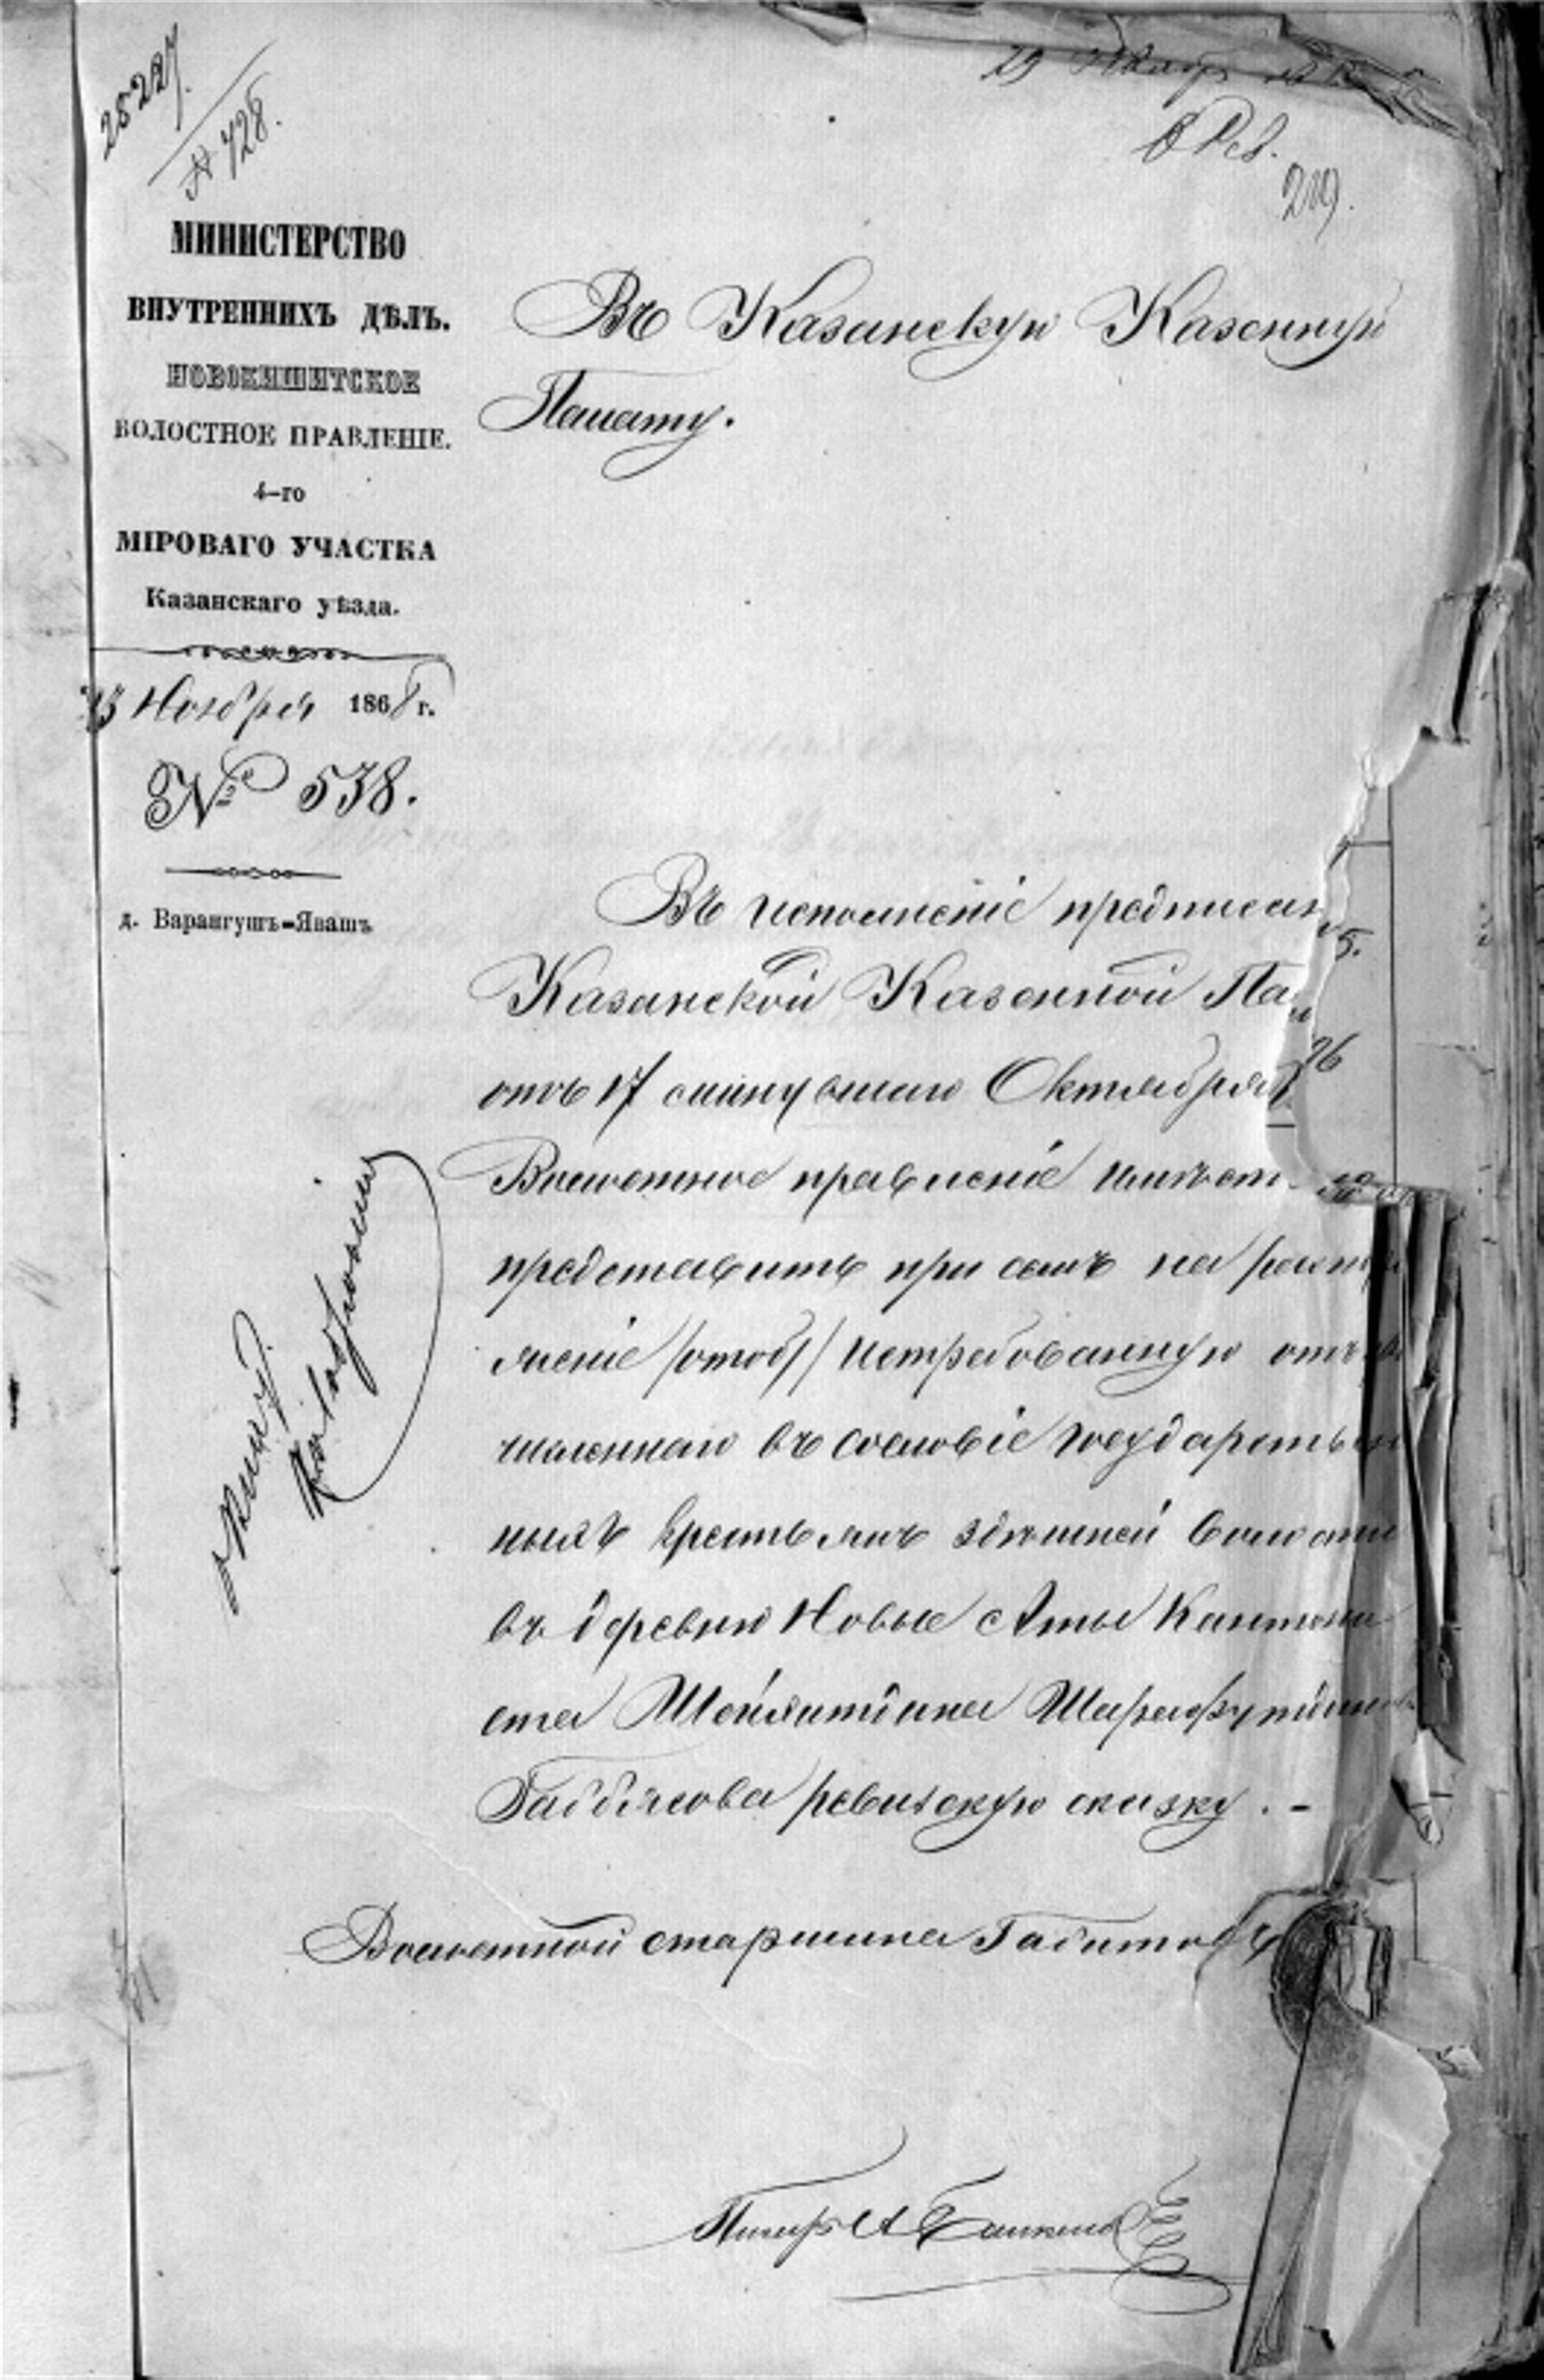 25227.
№ 728.
8 Рев.
219.
МИНИСТЕРСТВО
ВНУТРЕННИХЪ ДѢЛЪ.
НОВОКИШИТСКОЕ
ВОЛОСТНОЕ ПРАВЛЕНІЕ.
4-го
МІРОВАГО УЧАСТКА
Казанскаго уѣзда.
13 Ноября 1868 г.
№ 538.
д. Варангушъ-Явашъ
Въ Казанскую Казенную
Палату.
Въ исполненіе предписан
Казанской Казенной Пал
отъ 17 минувшаго Октября
Волостное правленіе имѣет
представить при семъ на
леніе истребованную
численнаго въ сословіе государствен
ныхъ крестьянъ здѣшней волости
въ деревни Новые Аты Кантони
ста Шарафутдин
ревизскую сказку. -
Волостной старшина Габитов
Писарь А